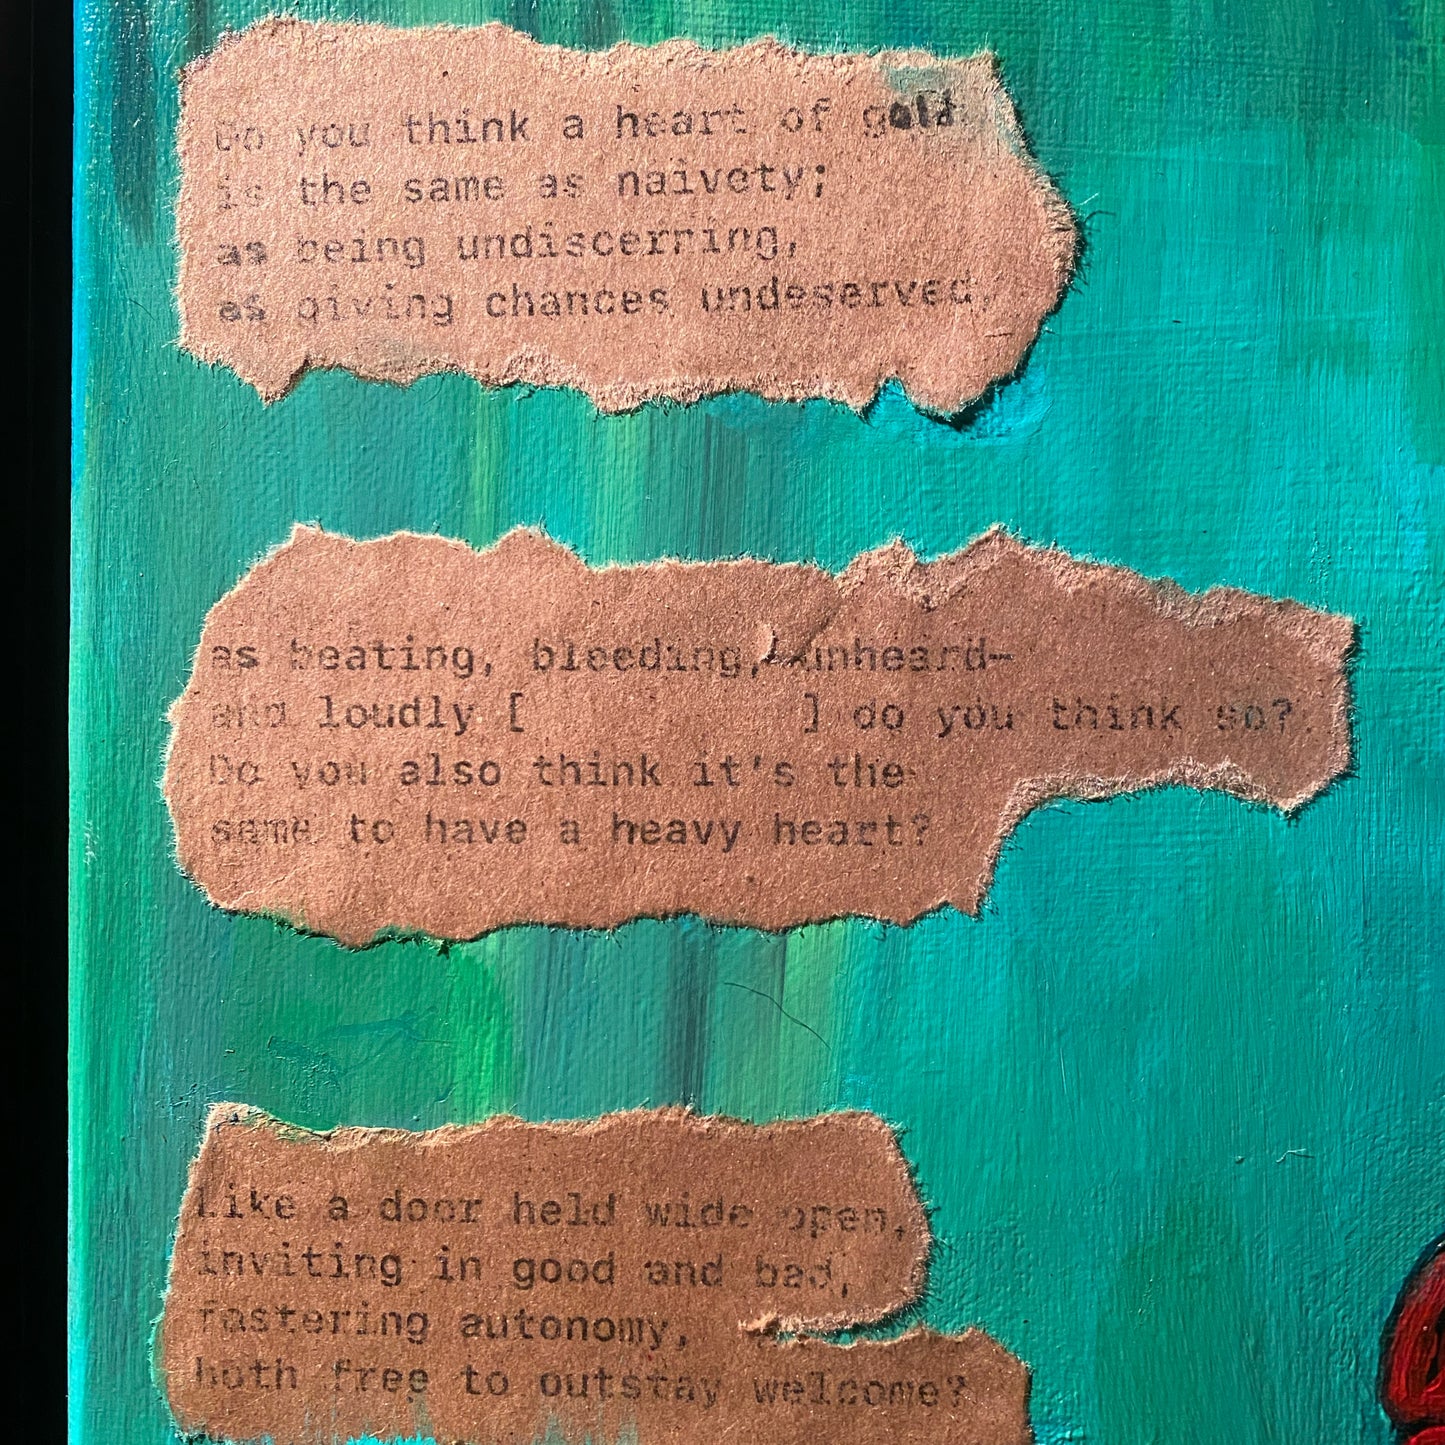 Do you think a heart of gold
is the same as naivety;
as being undiscerning,
as giving chances undeserved,
as beating, bleeding, unheard—
and loudly [ ] do you think so?
Do you also think it's the
same to have a heavy heart?
Like a door held wide open,
inviting in good and bad,
fostering autonomy,
both free to outstay welcome?